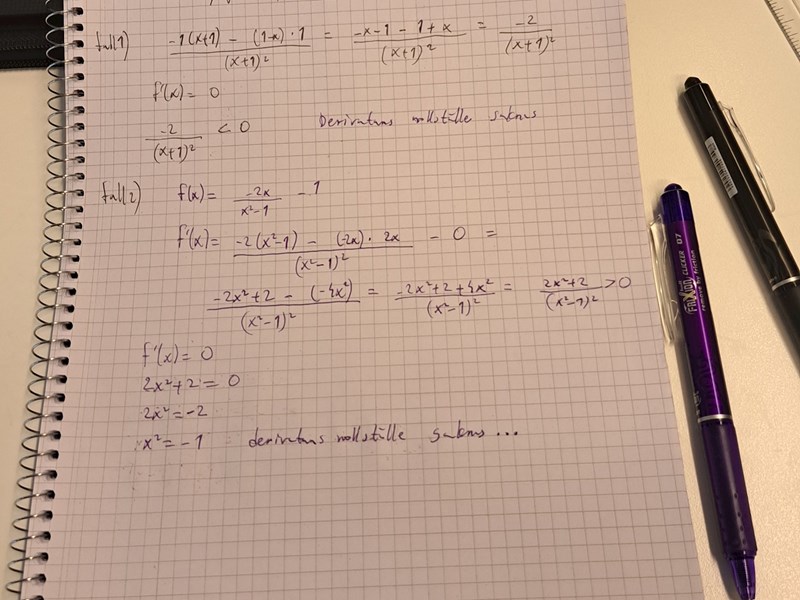 fall 1) -1(x+1) - (1-x)·1 / (x+1)² = -x-1-1+x / (x+1)² = -2 / (x+1)²
f'(x) = 0
-2 / (x+1)² < 0 Derivatans nollställe saknas
fall 2) f(x) = -2x / x²-1 - 1
f'(x) = -2(x²-1) - (-2x)·2x / (x²-1)² - 0 =
-2x²+2 - (-4x²) / (x²-1)² = -2x²+2+4x² / (x²-1)² = 2x²+2 / (x²-1)² > 0
f'(x) = 0
2x²+2 = 0
2x² = -2
x² = -1 derivatans nollställe saknas ...
FRIXION CLICKER 07